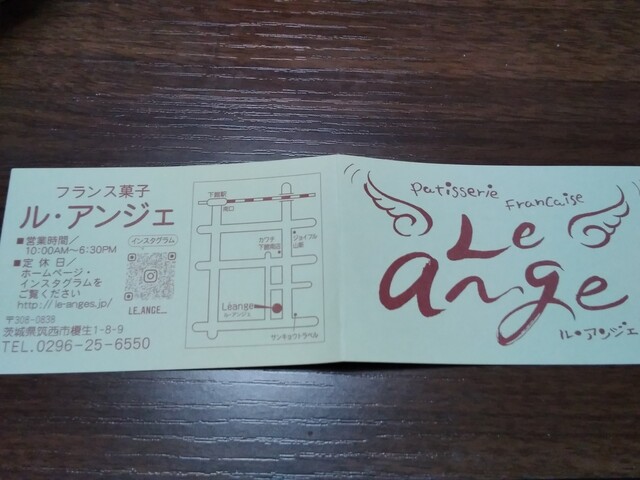 フランス菓子
ル・アンジェ
■営業時間／
10:00AM～6:30PM
■定休日／
ホームページ・
インスタグラムを
ご覧ください
http://le-anges.jp/
〒308-0839
茨城県筑西市榎生1-8-9
TEL.0296-25-6550
インスタグラム
LE.ANGE._
下館駅
南口
カワチ
下館南店
ジョイフル
山新
Léange
ル・アンジェ
サンキョウトラベル
Patisserie
Francaise
Le
ange
ル・アンジェ